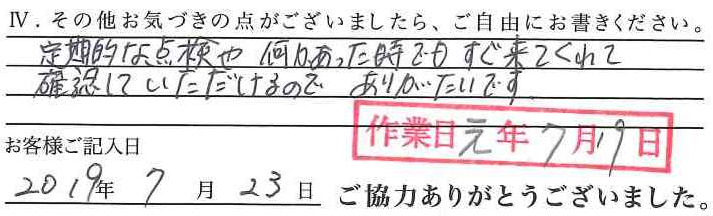 Ⅳ．その他お気づきの点がございましたら、ご自由にお書きください。
定期的な点検や 何かあった時でも すぐ来てくれて
確認していただけるので ありがたいです。
作業日元年7月19日
お客様ご記入日
2019年 7 月 23 日 ご協力ありがとうございました。